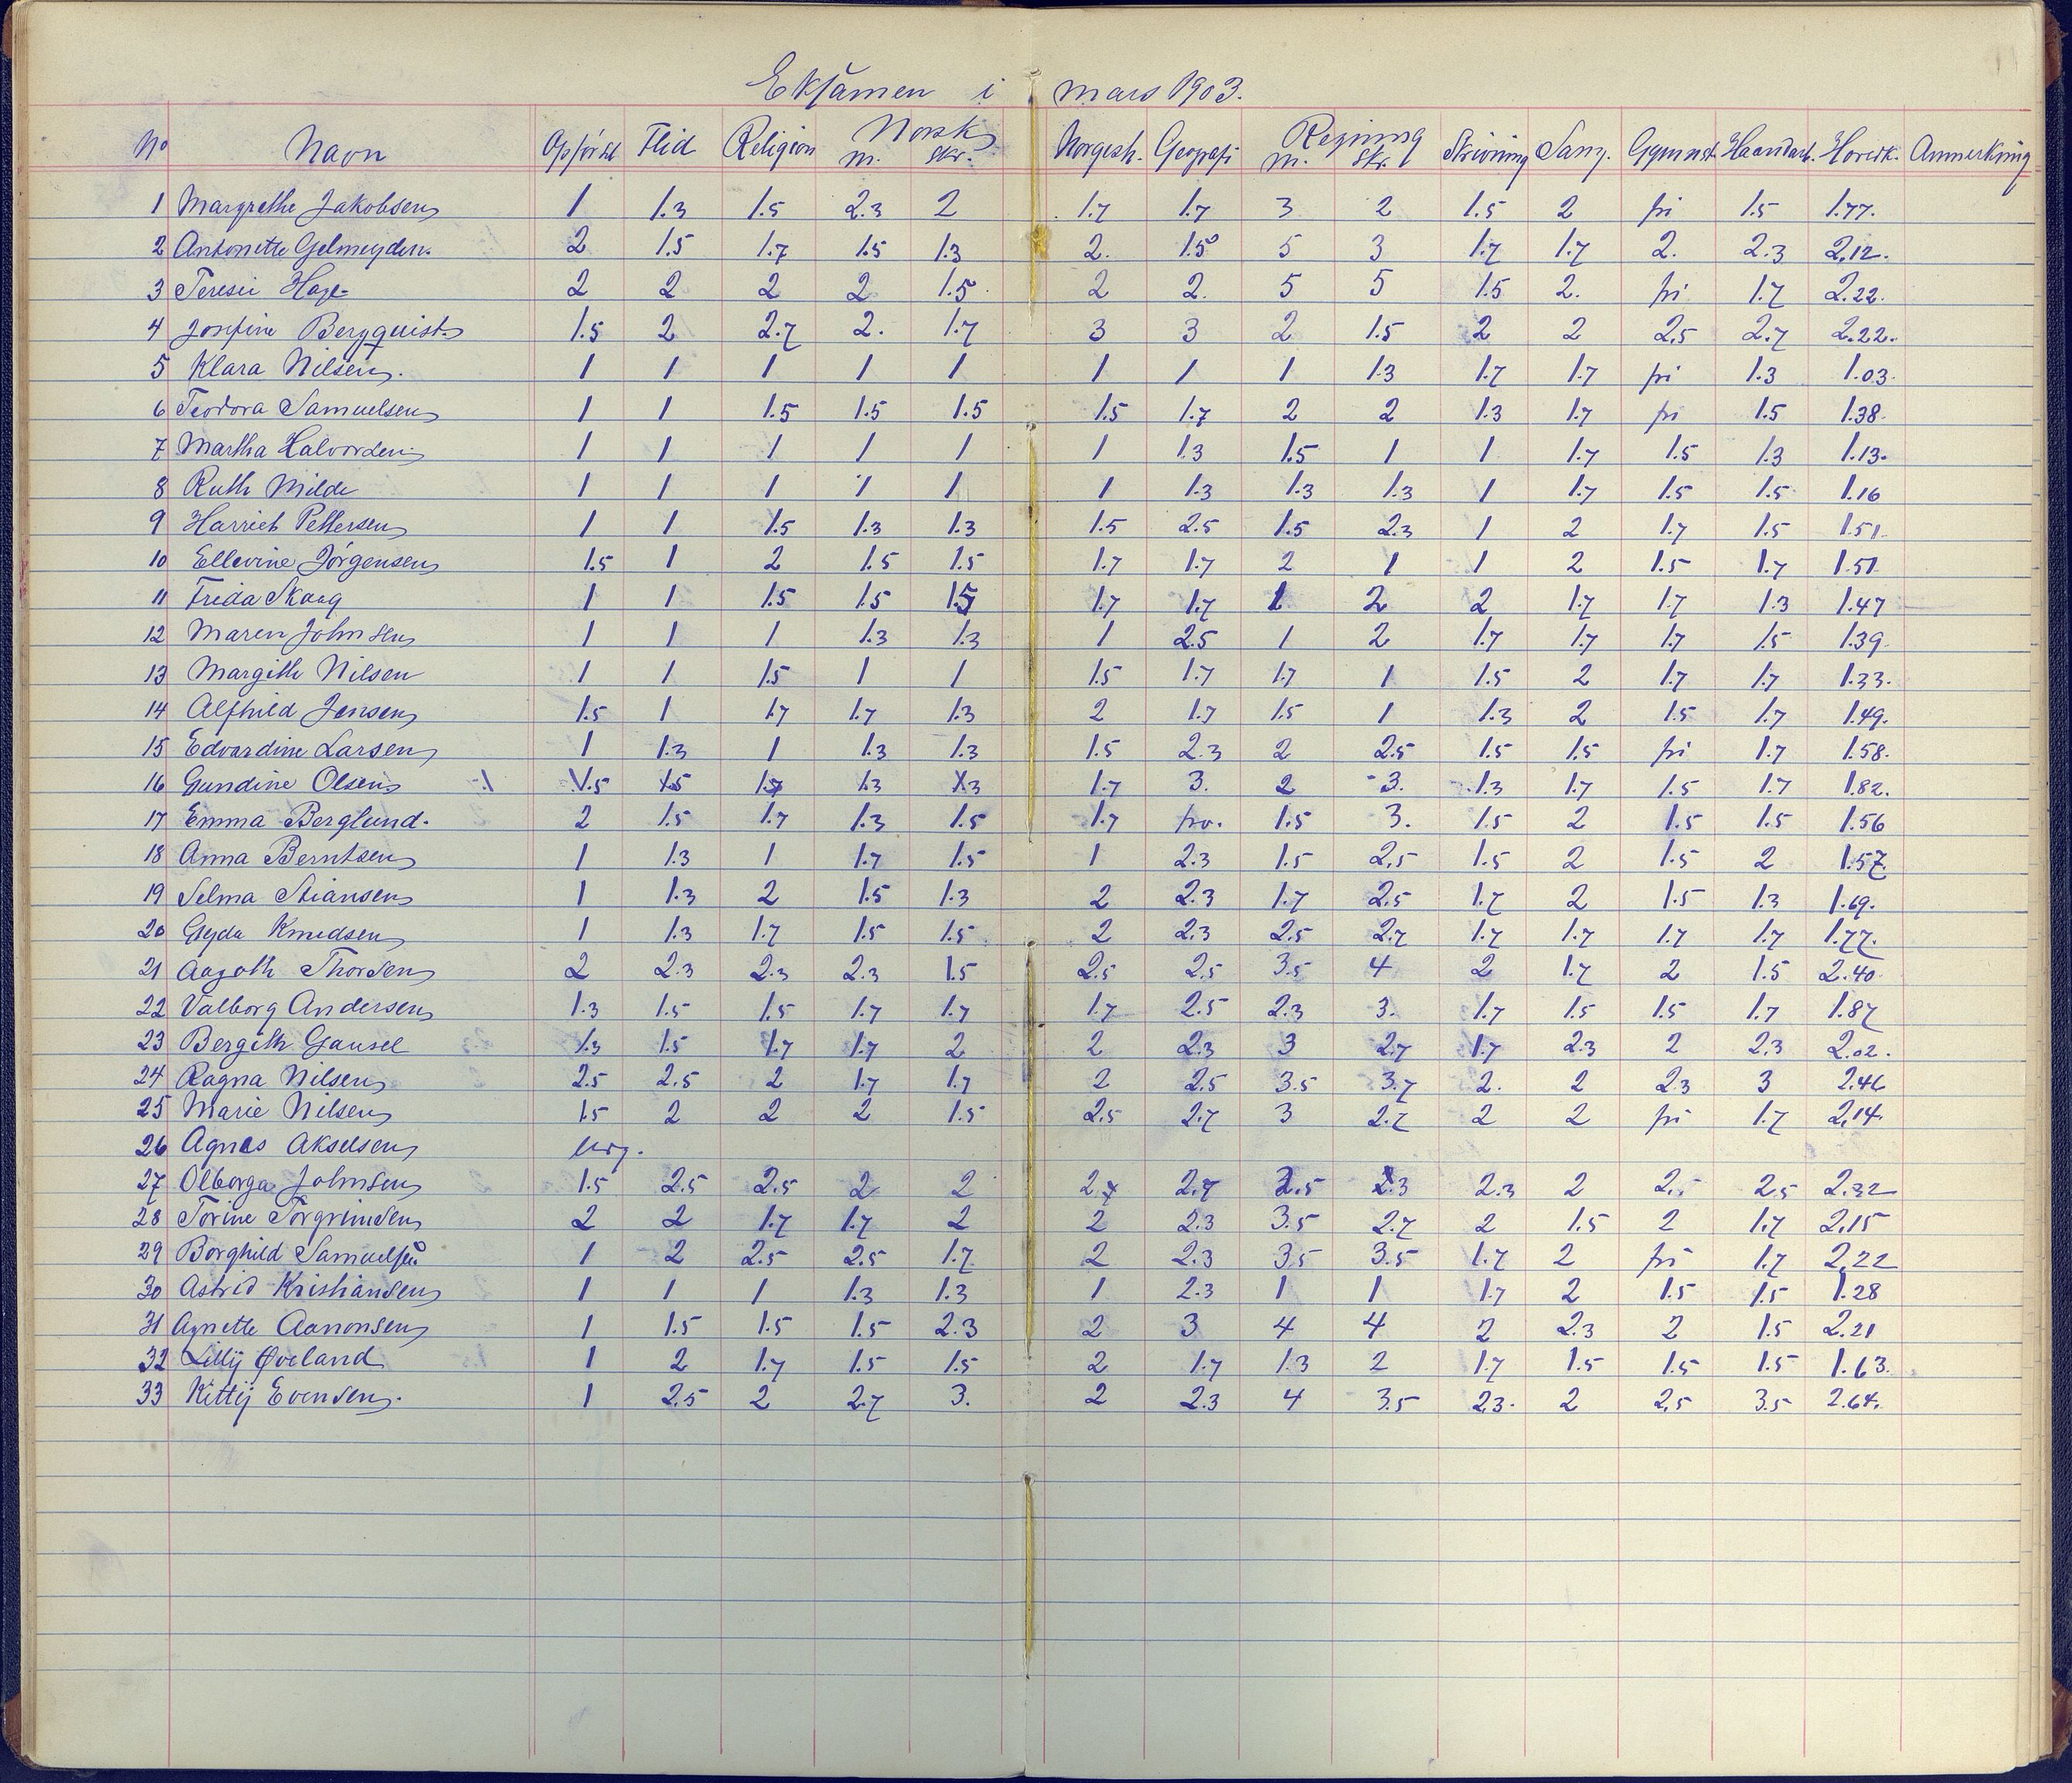 Eksamen i mars 1903.
No Navn Opförsel Flid Religion Norsk m. skr. Norgesh. Geografi Regning m. skr. Skrivning Sang. Gymnst. Haandarb. Hovedk. Anmerkning
1 Margrethe Jakobsen 1 1.3 1.5 2.3 2 1.7 1.7 3 2 1.5 2 fri 1.5 1.77.
2 Antonette Gelmeyden. 2 1.5 1.7 1.5 1.3 2. 1.5 5 3 1.7 1.7 2. 2.3 2.12.
3 Teresie Hage 2 2 2 2 1.5 2 2. 5 5 1.5 2. fri 1.7 2.22.
4 Josefine Bergquist 1.5 2 2.7 2. 1.7 3 3 2 1.5 2 2 2.5 2.7 2.22.
5 Klara Nilsen. 1 1 1 1 1 1 1 1 1.3 1.7 1.7 fri 1.3 1.03.
6 Teodora Samuelsen 1 1 1.5 1.5 1.5 1.5 1.7 2 2 1.3 1.7 fri 1.5 1.38.
7 Martha Halvorsen 1 1 1 1 1 1 1.3 1.5 1 1 1.7 1.5 1.3 1.13.
8 Ruth Milde 1 1 1 1 1 1 1.3 1.3 1.3 1 1.7 1.5 1.5 1.16
9 Harriet Pettersen 1 1 1.5 1.3 1.3 1.5 2.5 1.5 2.3 1 2 1.7 1.5 1.51.
10 Ellevine Jörgensen 1.5 1 2 1.5 1.5 1.7 1.7 2 1 1 2 1.5 1.7 1.51
11 Frida Skaag 1 1 1.5 1.5 1.5 1.7 1.7 1 2 2 1.7 1.7 1.3 1.47
12 Maren Johnsen 1 1 1 1.3 1.3 1 2.5 1 2 1.7 1.7 1.7 1.5 1.39.
13 Margith Nilsen 1 1 1.5 1 1 1.5 1.7 1.7 1 1.5 2 1.7 1.7 1.33.
14 Alfhild Jensen 1.5 1 1.7 1.7 1.3 2 1.7 1.5 1 1.3 2 1.5 1.7 1.49.
15 Edvardine Larsen 1 1.3 1 1.3 1.3 1.5 2.3 2 2.5 1.5 1.5 fri 1.7 1.58.
16 Gundine Olsen 1.5 1.5 1.7 1.3 1.3 1.7 3. 2 3. 1.3 1.7 1.5 1.7 1.82.
17 Emma Berglund. 2 1.5 1.7 1.3 1.5 1.7 frv. 1.5 3. 1.5 2 1.5 1.5 1.56
18 Anna Berntsen 1 1.3 1 1.7 1.5 1 2.3 1.5 2.5 1.5 2 1.5 2 1.57.
19 Selma Stiansen 1 1.3 2 1.5 1.3 2 2.3 1.7 2.5 1.7 2 1.5 1.3 1.69.
20 Gyda Knudsen 1 1.3 1.7 1.5 1.5 2 2.3 2.5 2.7 1.7 1.7 1.7 1.7 1.77.
21 Aagoth Thorsen 2 2.3 2.3 2.3 1.5 2.5 2.5 3.5 4 2 1.7 2 1.5 2.40
22 Valborg Andersen 1.3 1.5 1.5 1.7 1.7 1.7 2.5 2.3 3. 1.7 1.5 1.5 1.7 1.87
23 Bergith Gausel 1.3 1.5 1.7 1.7 2 2 2.3 3 2.7 1.7 2.3 2 2.3 2.02.
24 Ragna Nilsen 2.5 2.5 2 1.7 1.7 2 2.5 3.5 3.7 2. 2 2.3 3 2.46
25 Marie Nilsen 1.5 2 2 2 1.5 2.5 2.7 3 2.7 2 2 fri 1.7 2.14.
26 Agnes Akselsen
27 Olborga Johnsen 1.5 2.5 2.5 2 2 2.7 2.7 2.5 2.3 2.3 2 2.5 2.32
28 Torine Torgrimsen 2 2 1.7 1.7 2 2 2.3 3.5 2.7 2 1.5 2 1.7 2.15
29 Borghild Samuelsen 1 2 2.5 2.5 1.7 2 2.3 3.5 3.5 1.7 2 fri 1.7 2.22
30 Astrid Kristiansen 1 1 1 1.3 1.3 1 2.3 1 1 1.7 2 1.5 1.5 1.28
31 Agnette Aanonsen 1 1.5 1.5 1.5 2.3 2 3 4 4 2 2.3 2 1.5 2.21
32 Lillÿ Øveland 1 2 1.7 1.5 1.5 2 1.7 1.3 2 1.7 1.5 1.5 1.5 1.63.
33 Kittÿ Evensen. 1 2.5 2 2.7 3. 2 2.3 4 3.5 2.3. 2 2.5 3.5 2.64.